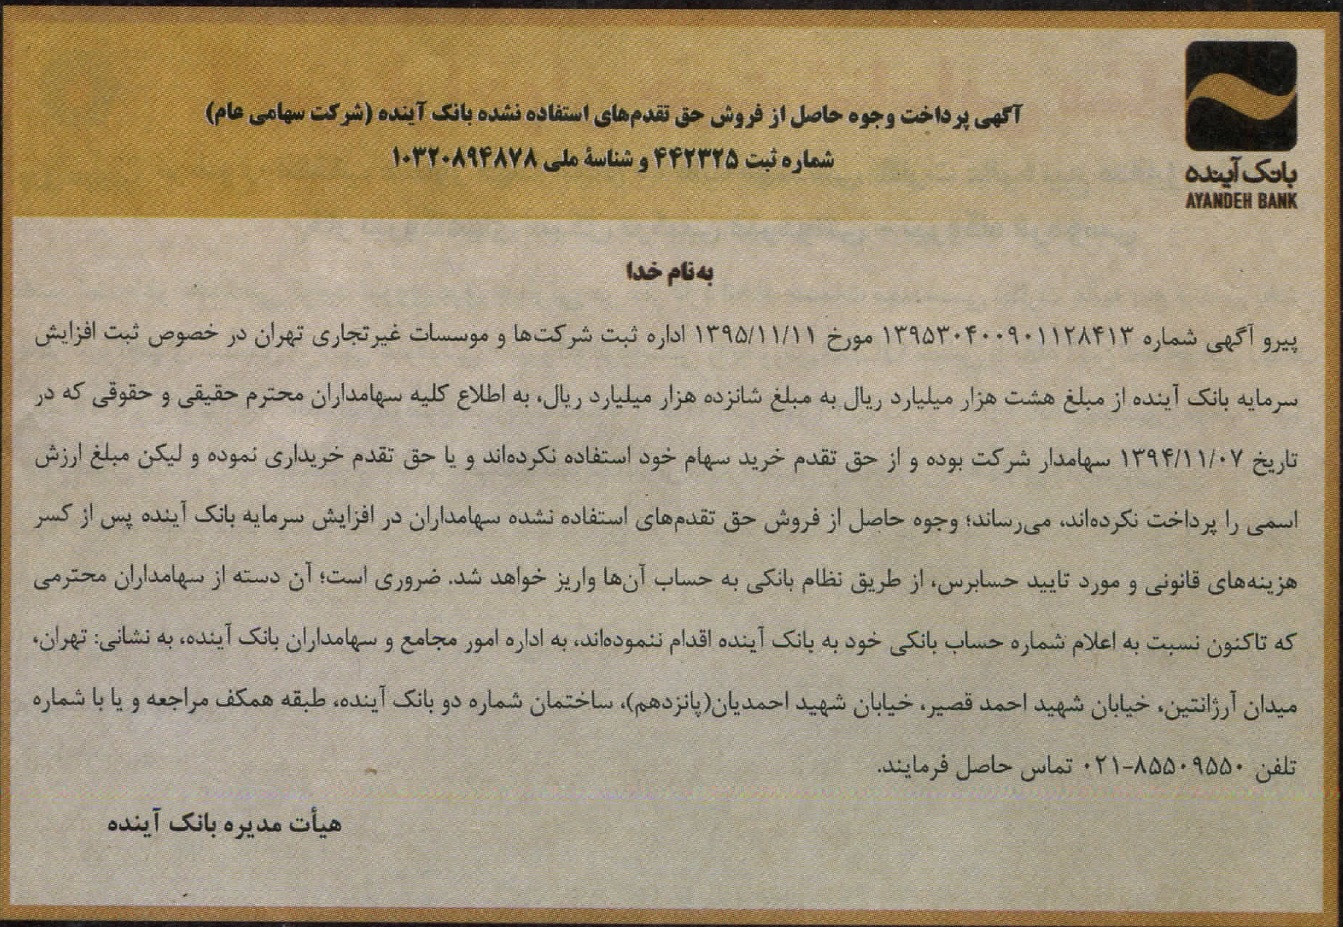 بانک آینده
AYANDEH BANK
آگهی پرداخت وجوه حاصل از فروش حق تقدم‌های استفاده نشده بانک آینده (شرکت سهامی عام)
شماره ثبت ۴۴۲۳۲۵ و شناسهٔ ملی ۱۰۳۲۰۸۹۴۸۷۸
به‌نام خدا
پیرو آگهی شماره ۱۳۹۵۳۰۴۰۰۹۰۱۱۲۸۴۱۳ مورخ ۱۳۹۵/۱۱/۱۱ اداره ثبت شرکت‌ها و موسسات غیرتجاری تهران در خصوص ثبت افزایش
سرمایه بانک آینده از مبلغ هشت هزار میلیارد ریال به مبلغ شانزده هزار میلیارد ریال، به اطلاع کلیه سهامداران محترم حقیقی و حقوقی که در
تاریخ ۱۳۹۴/۱۱/۰۷ سهامدار شرکت بوده و از حق تقدم خرید سهام خود استفاده نکرده‌اند و یا حق تقدم خریداری نموده و لیکن مبلغ ارزش
اسمی را پرداخت نکرده‌اند، می‌رساند؛ وجوه حاصل از فروش حق تقدم‌های استفاده نشده سهامداران در افزایش سرمایه بانک آینده پس از کسر
هزینه‌های قانونی و مورد تایید حسابرس، از طریق نظام بانکی به حساب آن‌ها واریز خواهد شد. ضروری است؛ آن دسته از سهامداران محترمی
که تاکنون نسبت به اعلام شماره حساب بانکی خود به بانک آینده اقدام ننموده‌اند، به اداره امور مجامع و سهامداران بانک آینده، به نشانی: تهران،
میدان آرژانتین، خیابان شهید احمد قصیر، خیابان شهید احمدیان(پانزدهم)، ساختمان شماره دو بانک آینده، طبقه همکف مراجعه و یا با شماره
تلفن ۸۵۵۰۹۵۵۰-۰۲۱ تماس حاصل فرمایند.
هیأت مدیره بانک آینده